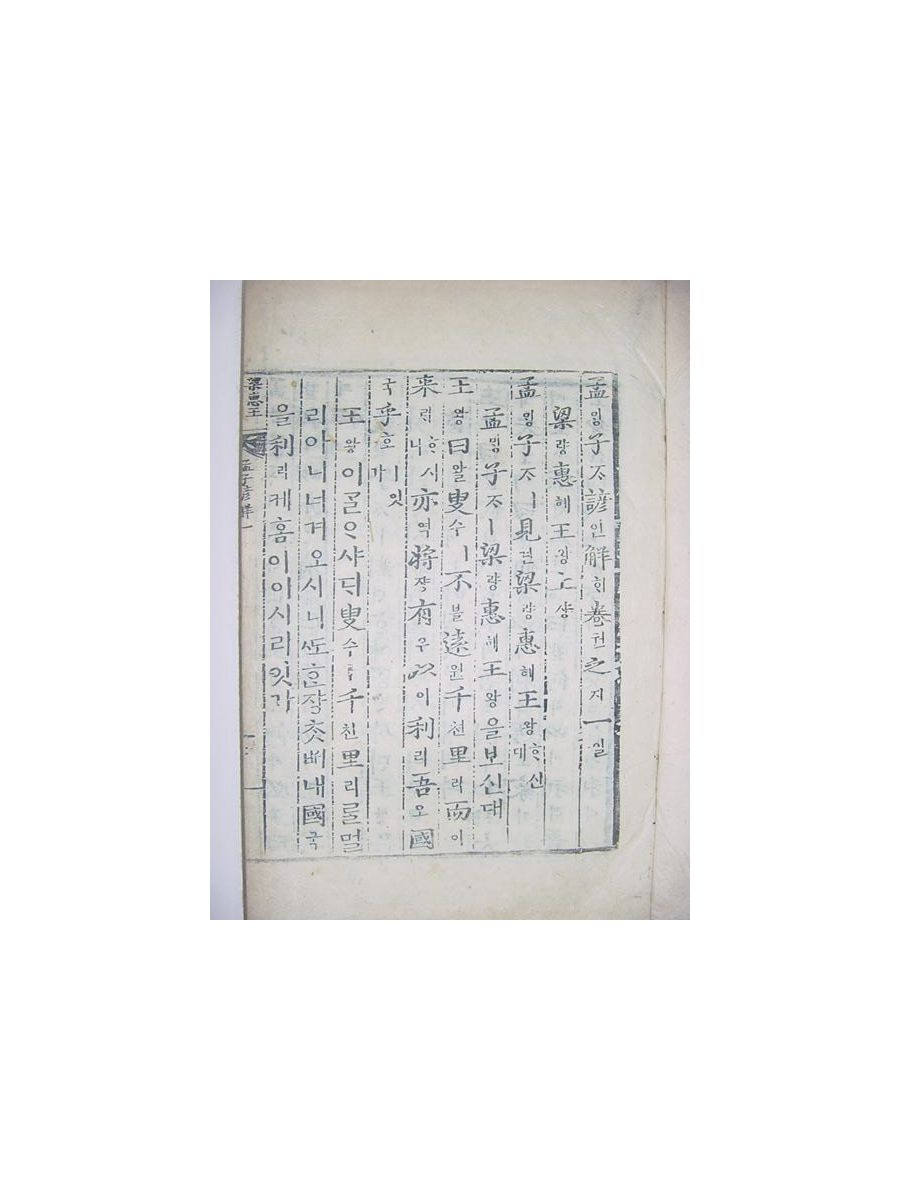 孟ᄆᆡᆼ子ᄌᆞ諺언解ᄒᆡ卷권之지一일
梁량惠혜王왕上샹
孟ᄆᆡᆼ子ᄌᆞㅣ見견梁량惠혜王왕ᄒᆞ신대
孟ᄆᆡᆼ子ᄌᆞㅣ梁량惠혜王왕을보신대
王왕曰왈叟수ㅣ不블遠원千쳔里리而이
来ᄅᆡᄒᆞ시니亦역將쟝有유以이利리吾오國
국乎호ㅣ잇가
王왕이ᄀᆞᆯᄋᆞ샤ᄃᆡ叟수ㅣ千쳔里리ᄅᆞᆯ멀
리아니너겨오시니ᄯᅩᄒᆞᆫ쟝ᄎᆞᆺᄡᅥ내國국
을利리케홈이이시리잇가
梁惠王 孟子諺解一